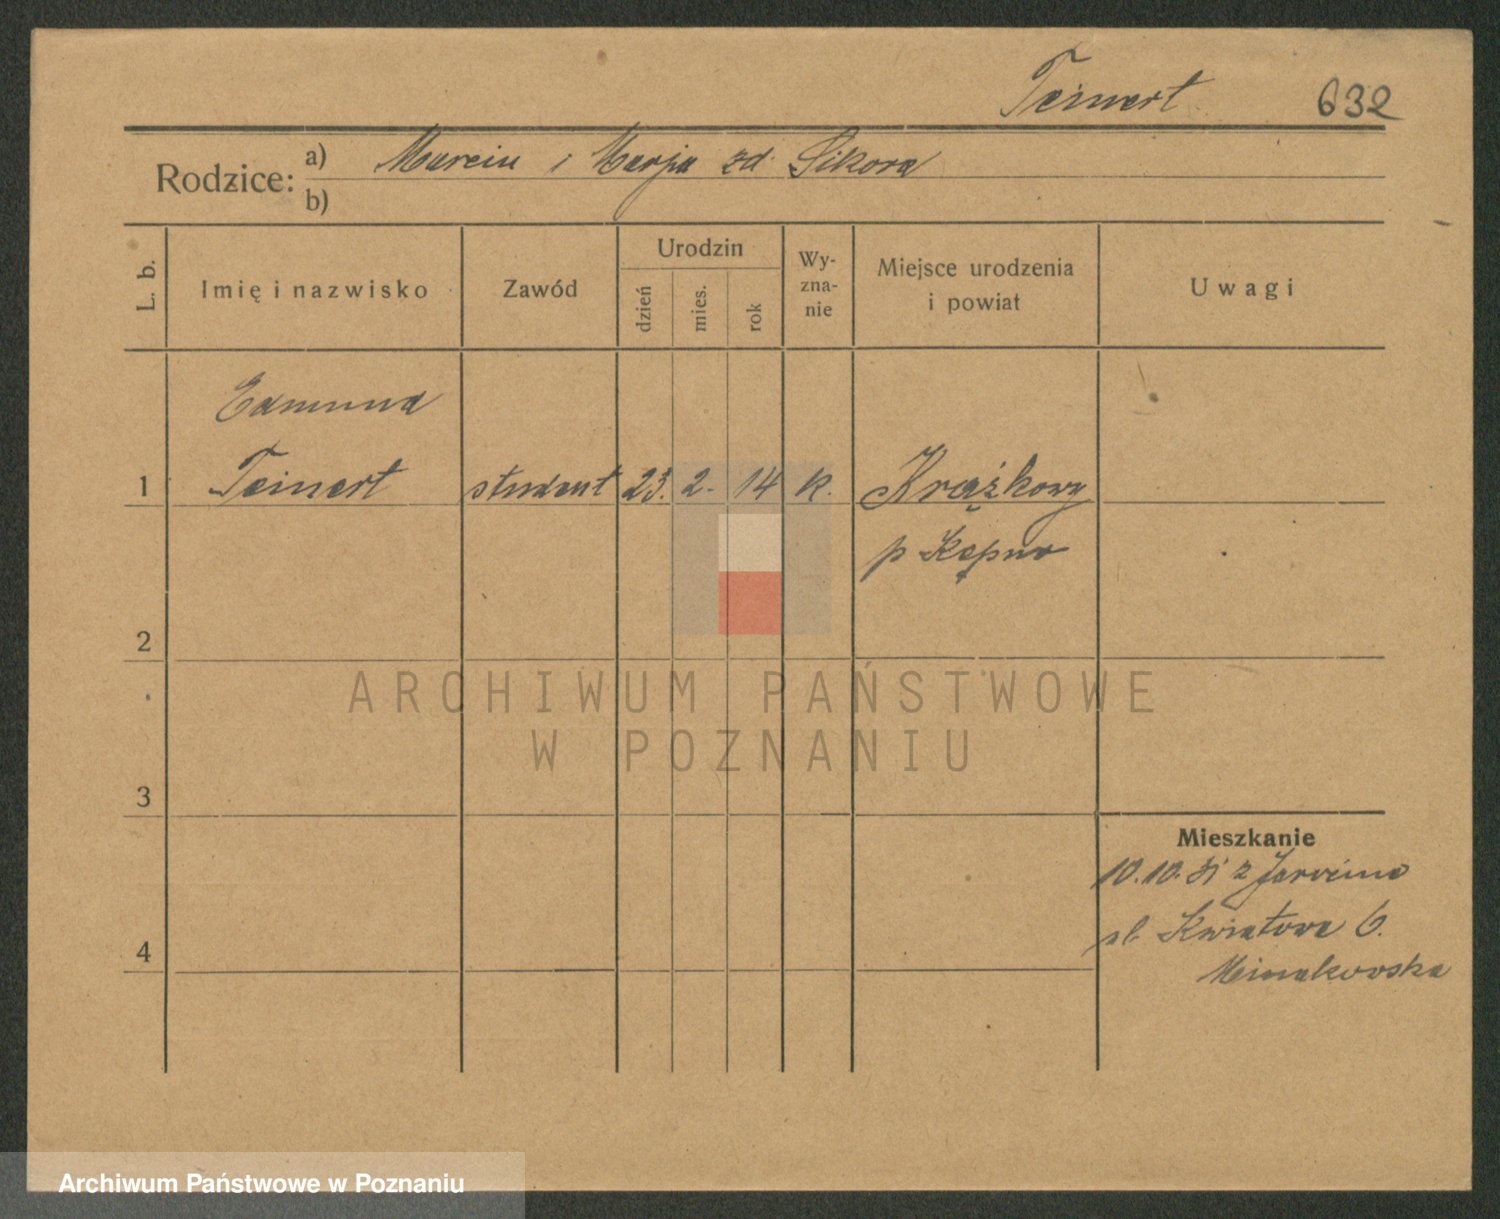 Teinert 632
Rodzice: a) Marcin i Marja zd. Sikora
b)
L. b.
Imię i nazwisko
Zawód
Urodzin
dzień
mies.
rok
Wy-
zna-
nie
Miejsce urodzenia
i powiat
Uwagi
Edmund
1 Teinert student 23. 2. 14 k. Krążkowy
p Kępno
2
3
4
Mieszkanie
10.10. z
ul. Kwiatowa 6.
ARCHIWUM PAŃSTWOWE
W POZNANIU
Archiwum Państwowe w Poznaniu